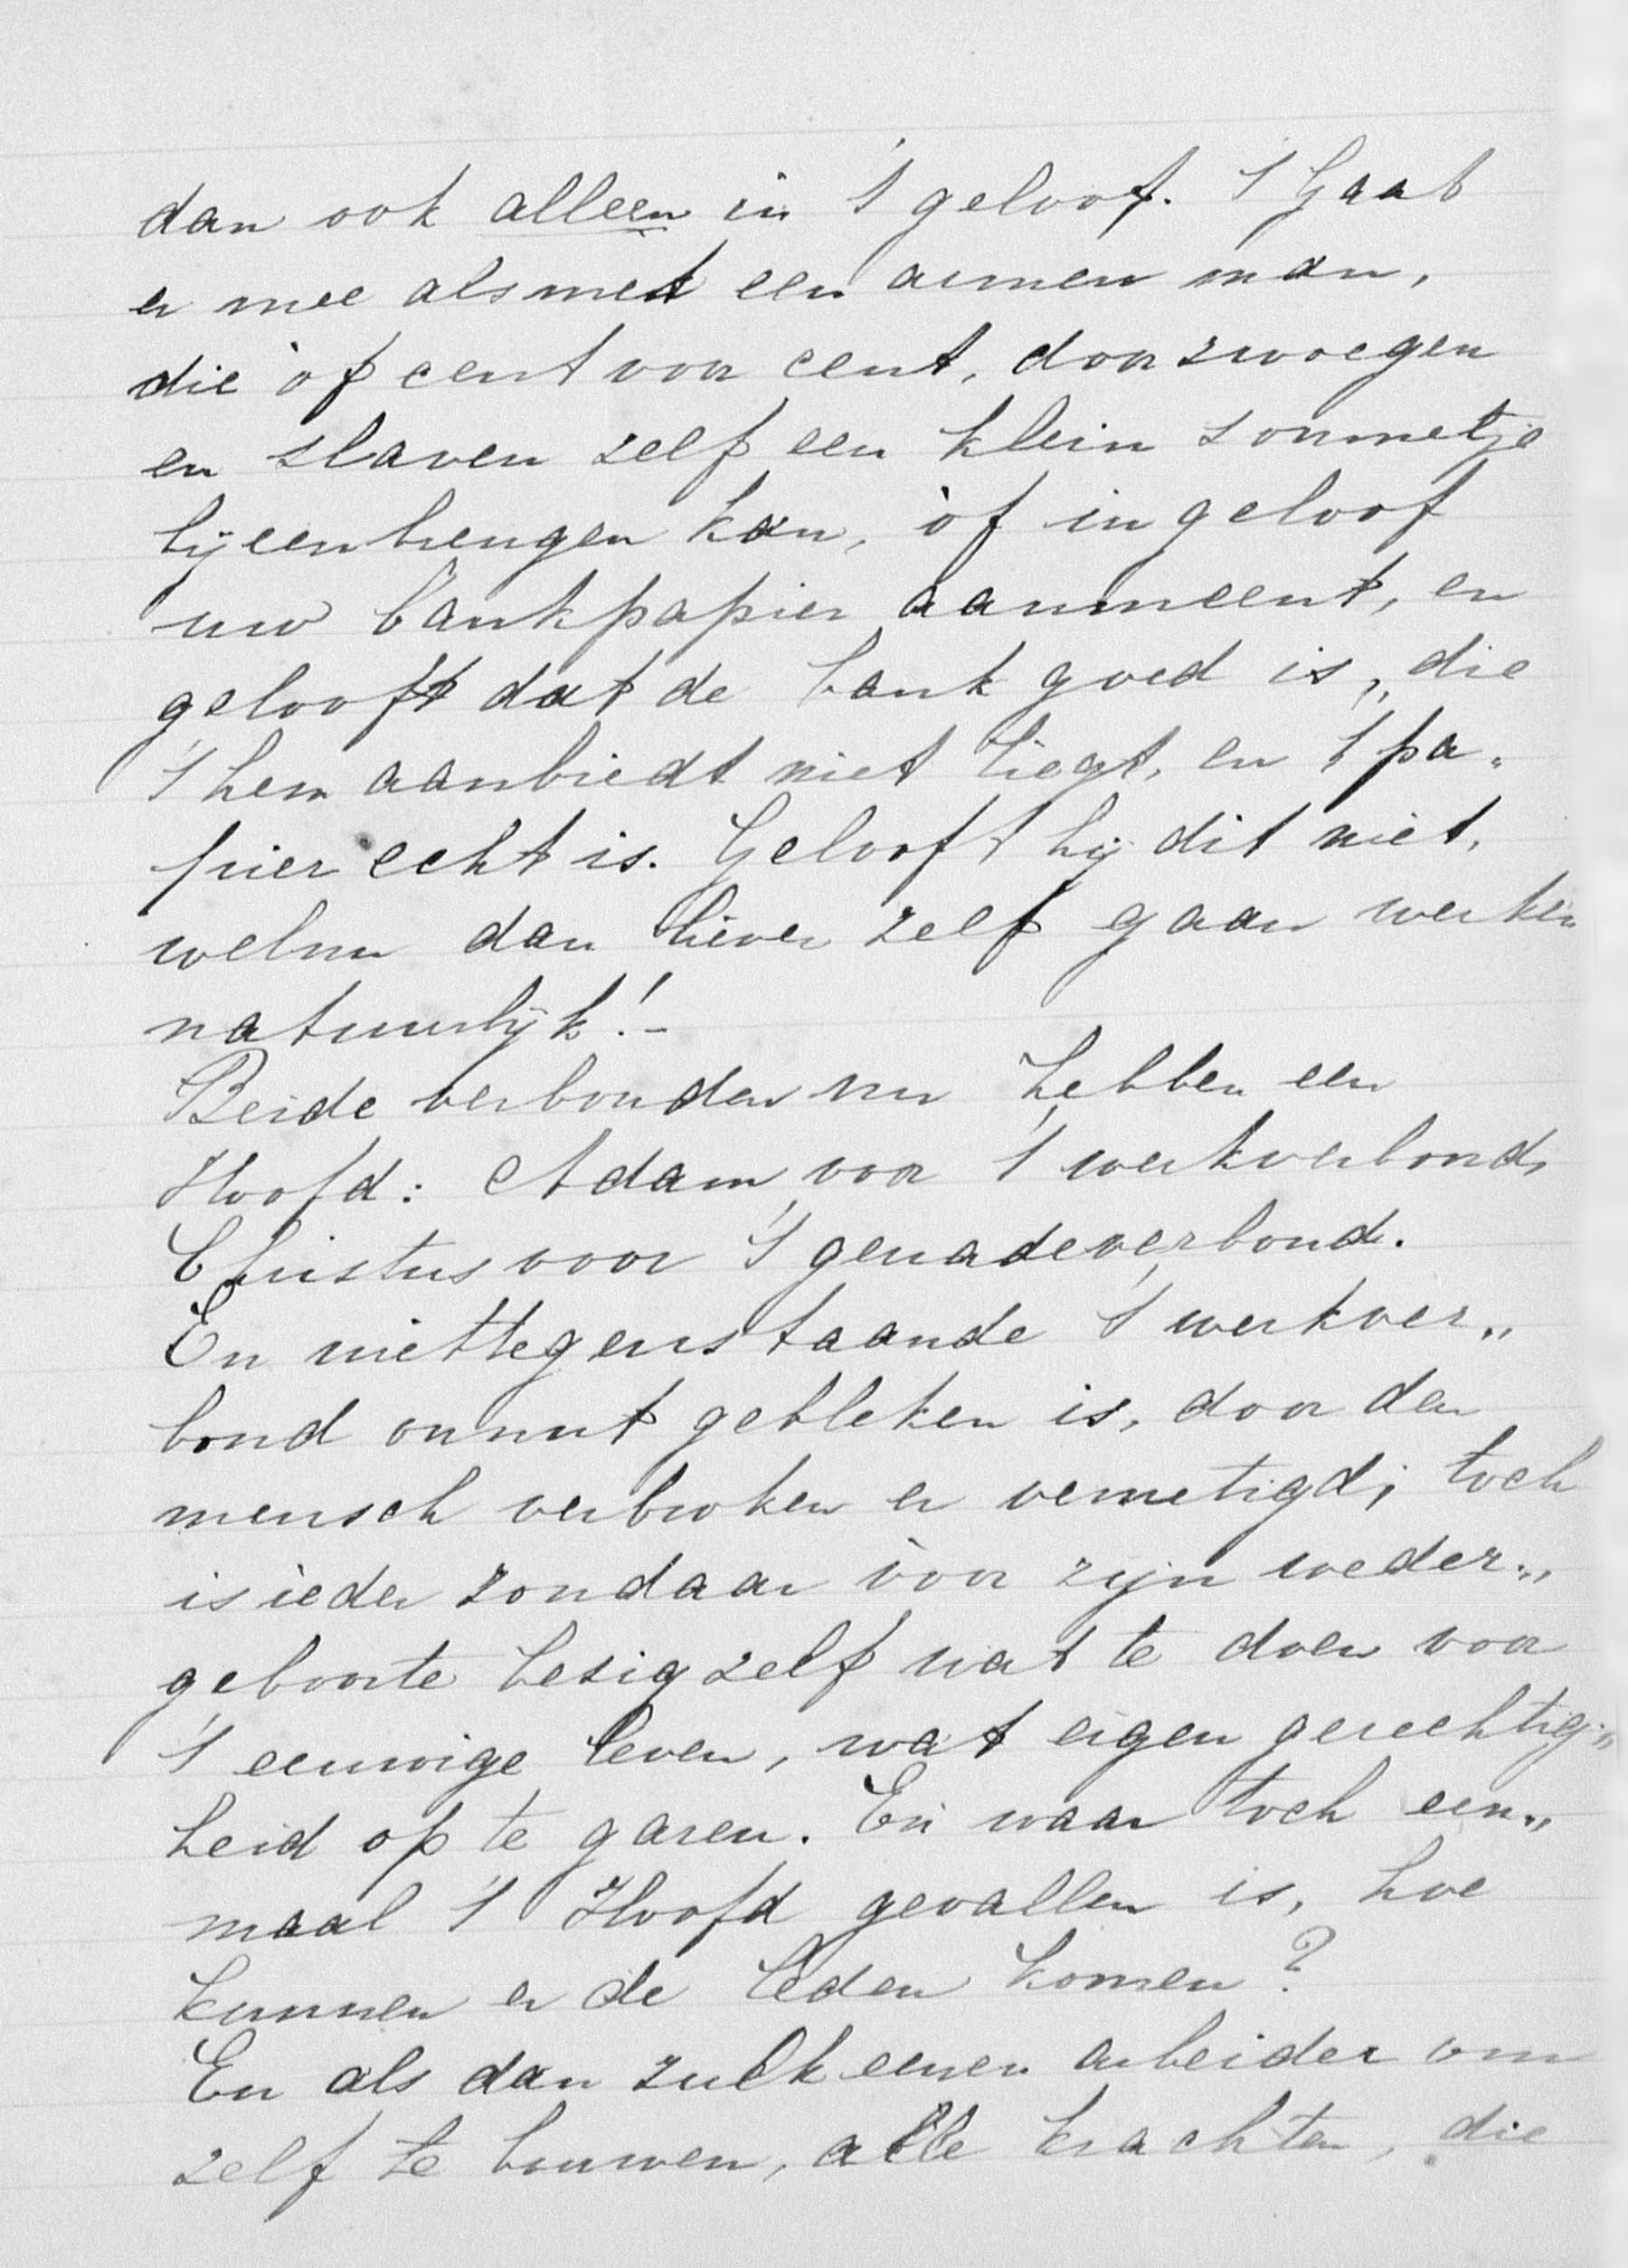 dan ook alleen in 't geloof. 't Gaat
er mee als met een armen man,
die òf cent voor cent, door zwoegen
en slaven zelf een klein sommetje
bijeenbrengen kan, òf in geloof
uw bankpapier aanneemt, en
gelooft dat de bank goed is, die
't hem aanbiedt niet liegt, en 't pa„
pier echt is. Gelooft hij dit niet,
welnu dan liever zelf gaan werken
natuurlijk!-
Beide verbonden nu hebben een
Hoofd: Adam voor 't werkverbond,
Christus voor 't genadeverbond.
En niettegenstaande 't werkver„
bond onnut gebleken is, door den
mensch verbroken er vernietigd; toch
is ieder zondaar vóór zijn weder„
geboorte bezig zelf wat te doen voor
't eeuwige leven, wat eigen gerechtig„
heid op te garen. En waar toch een„
maal 't Hoofd gevallen is, hoe
kunnen er de leden komen?
En als dan zulk eenen arbeider om
zelf te bouwen, alle krachten, die